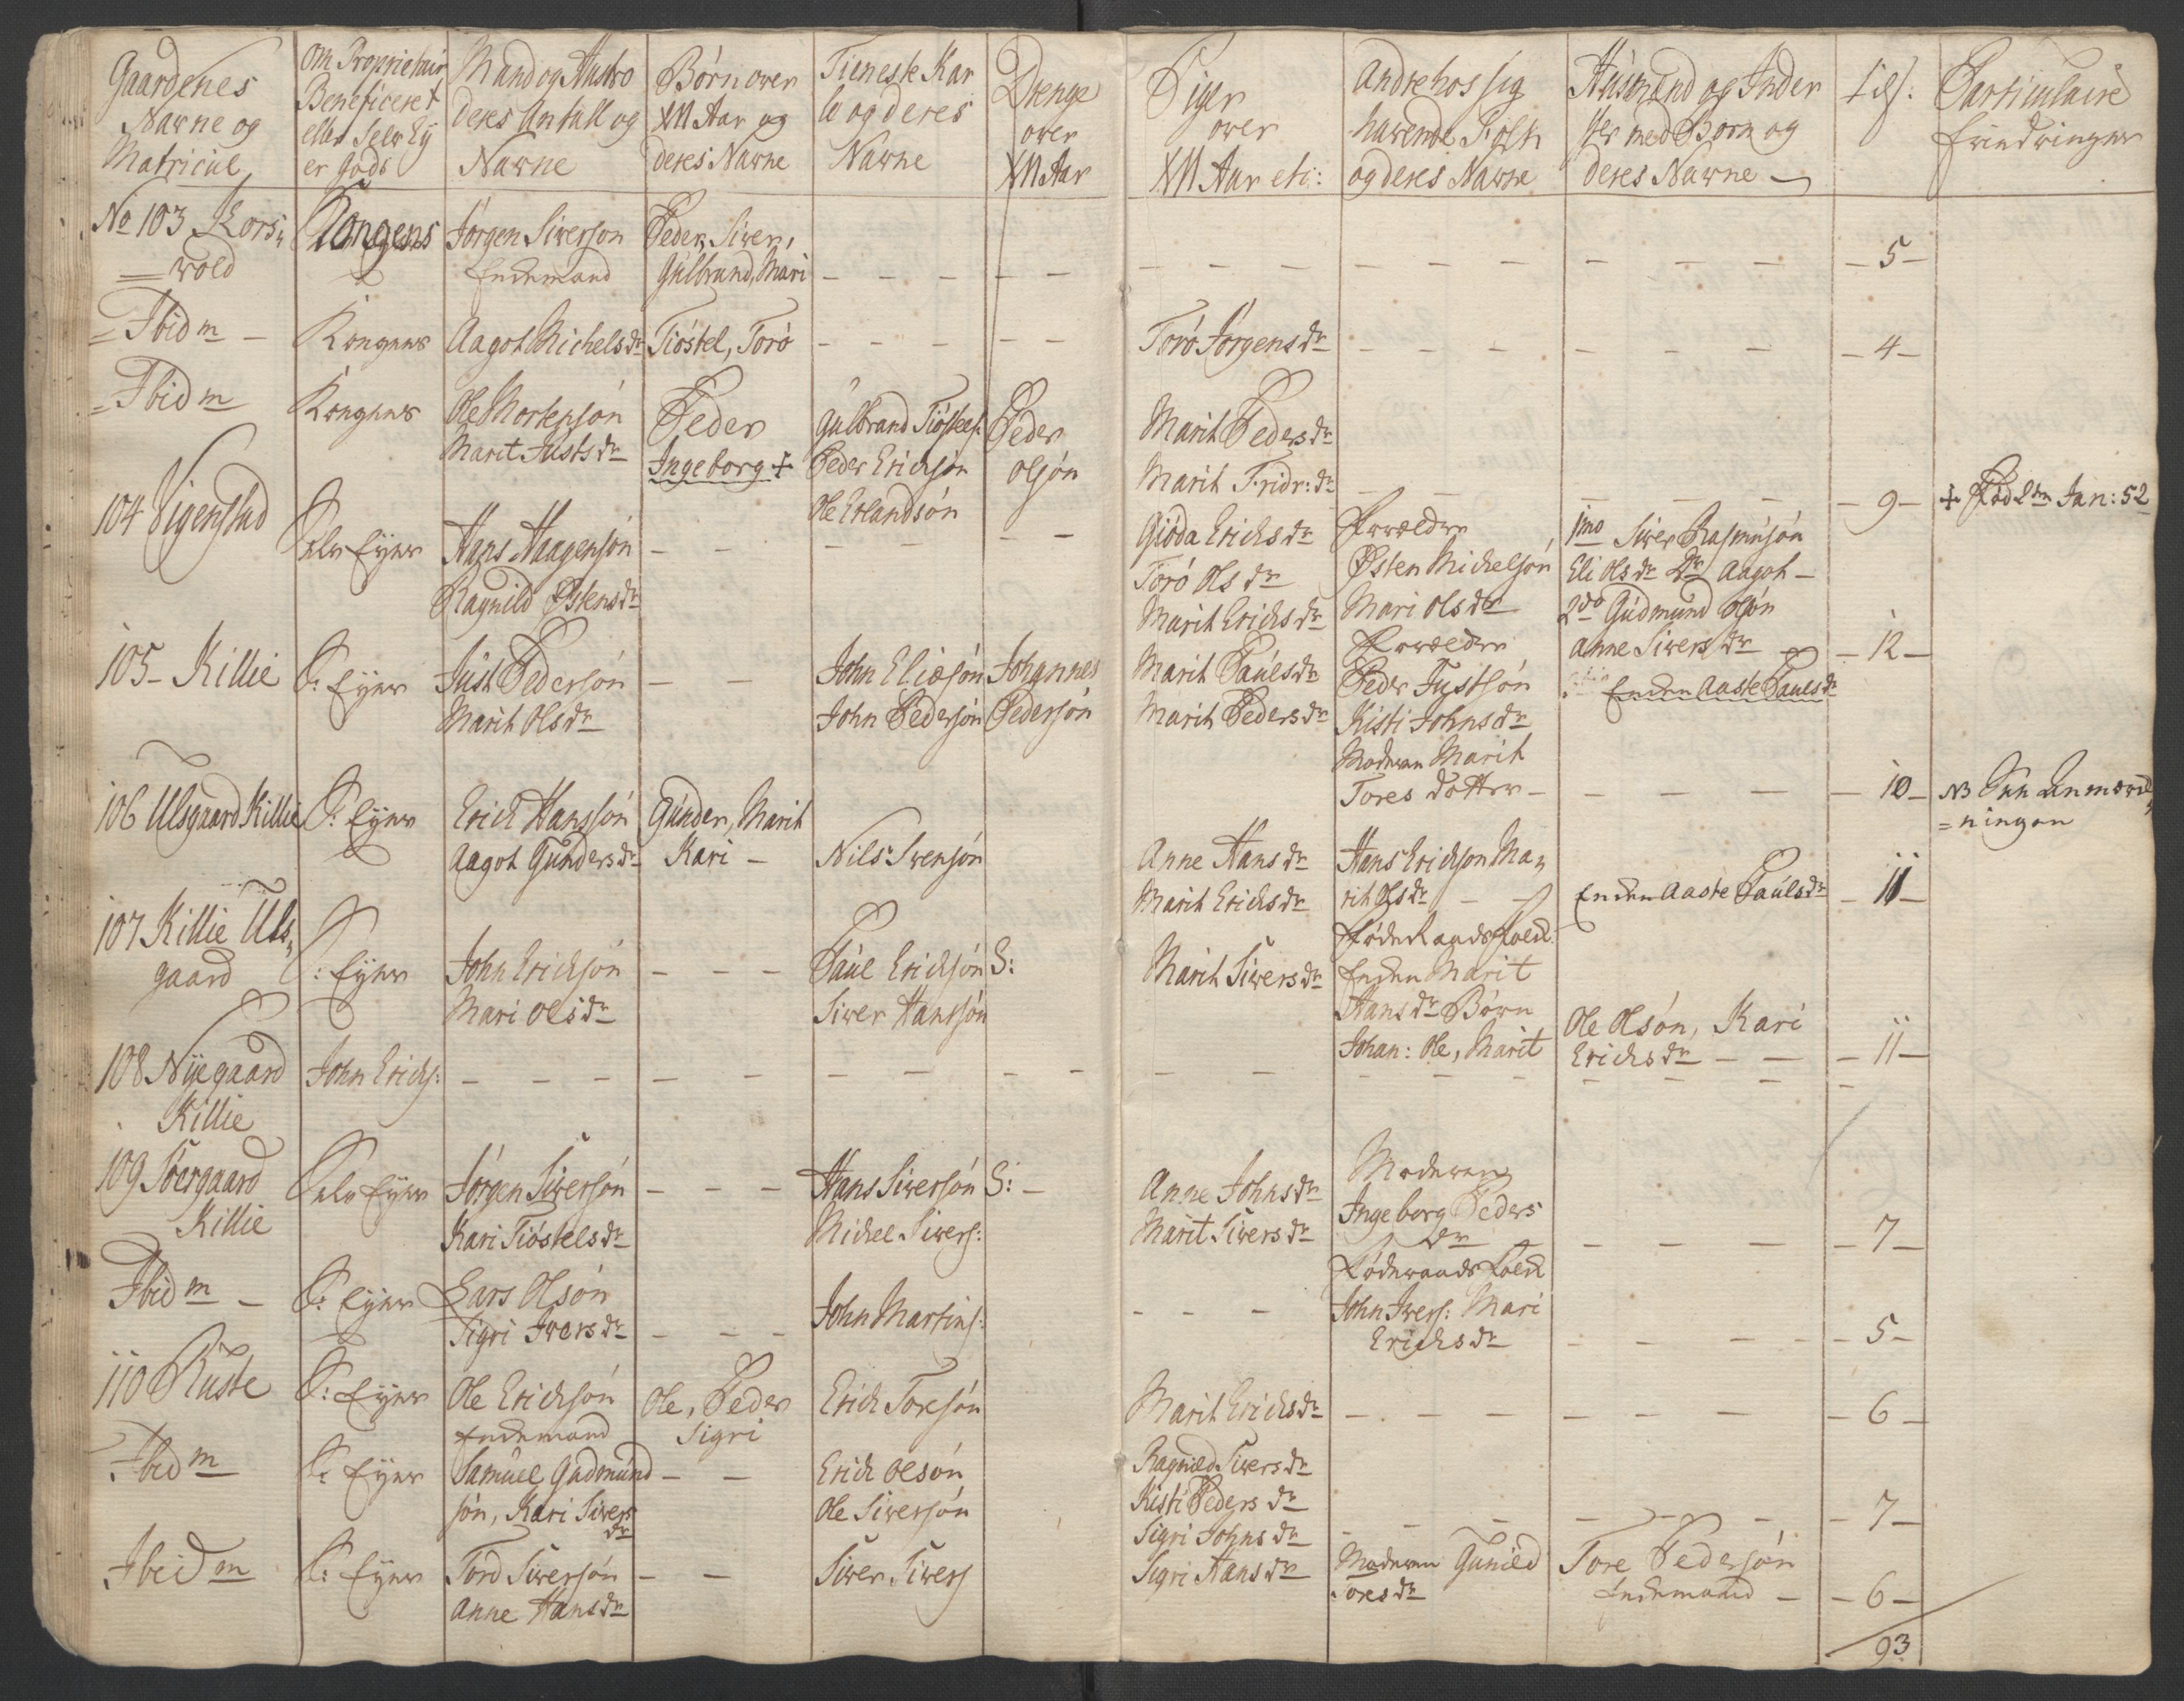 Gaardenes
Navne og
Matricul
Om Proprietair
Beneficeret
eller Selv Ey
er Gods
Mand og Hustro
deres Antall og
Navne
Børn over
XII Aar og
deres Navne
Tieneste Kar
le og deres
Navne
Drenge
over
XII Aar
Piger
over
XII Aar etc:
Andre hos sig
havende Folk
og deres Navne
Huusmænd og Inder
ster med Børn og
deres Navne
Particulaire
No 103 Kors„
= vold
Kongens
Jørgen Siverson
Enckemand
Peder, Siver,
Gulbrand, Mari
– 5 –
= Ibidm –
Kongens
Aagot Michelsdr
Tiøstel, Torø
Torø Jørgensdr
– 4 –
= Ibidm
Kongens
Ole Mortensøn
Marit Justsdr
Peder
Ingeborg +
Gulbrand Tiøstels:
Peder Erichsøn
Ole Erlandsøn
Peder
Olsøn
Marit Pedersdr
Marit Fridr: dr
– 9 –
+ Død 2den Jan: 52
104 Vigenstad
Selv Eyer
Hans Haagensøn
Ragnild Østensdr
Gioda Erichsdr
Torø Olsdr
Marit Erichsdr
Forældre
Østen Michelsøn
Mari Olsdr
1mo Siver Rasmusøn
Eli Olsdr Dr Aagot –
2do Gudmund Olsøn
Anne Siversdr
– 12 –
105 – Killie
S: Eyer
Just Pedersøn
Marit Olsdr
John Eliæsøn
John Pedersøn
Johannes
Pedersøn
Marit Paulsdr
Marit Pedersdr
Forældre
Peder Justsøn
Kisti Johnsdr
Moderen Marit
Tores Dotter –
Encken Aaste Paulsdr
– 10 –
NB
= ningen
106 Ulsgaard Killie
S: Eyer
Erich Hanssøn
Aagot Gundersdr
Gunder, Marit
Kari –
Nils Svensøn
Anne Hansdr
Marit Erichsdr
Hans Erichsøn Ma„
rit Olsdr
Encken Aaste Paulsdr
– 11 –
107 Killie Uls„
gaard
S: Eyer
John Erichsøn
Mari Olsdr
Paul Erichsøn
Siver Hanssøn
S:
Marit Siversdr
Føderaads Folck
Encken Marit
Hansdr Børn
Johan: Ole, Marit
Ole Olsøn, Kari
Erichsdr – –
– 11 –
108 Nyegaard
Killie
John Erichs:
109 Søergaard
Killie
Selv Eyer
Jørgen Siversøn
Kari Tiøstelsdr
Hans Siversøn
Michel Sivers:
S: –
Anne Johnsdr
Marit Siversdr
Moderen
Ingeborg Peders
Dr
– 7 –
Ibidm –
S: Eyer
Lars Olsøn
Sigri Iversdr
John Martins:
Føderaads Folck
John Ivers: Mari
Erichsdr
– 5 –
110 Ruste
S: Eyer
Ole Erichsøn
Enckemand
Ole, Peder
Sigri
Erich Toresøn
Marit Erichsdr
– 6 –
Ibidm
S: Eyer
Samuel Gudmund
søn, Kari Sivers
dr
Erich Olsøn
Ole Siversøn
Ragnild Siversdr
Kisti Pedersdr
Sigri Johnsdr
– 7 –
Ibidm
S: Eyer
Tord Siversøn
Anne Hansdr
Siver Sivers
Sigri Hansdr
Moderen Gunild
Toresdr
Tore Pedersøn
Enckemand –
– 6 –
93